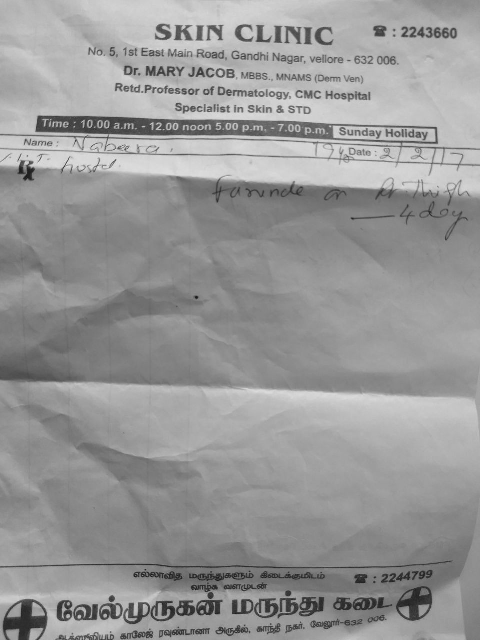 SKIN CLINIC ☎ : 2243660
No. 5, 1st East Main Road, Gandhi Nagar, vellore - 632 006.
Dr. MARY JACOB, MBBS., MNAMS (Derm Ven)
Retd.Professor of Dermatology, CMC Hospital
Specialist in Skin & STD
Time : 10.00 a.m. - 12.00 noon 5.00 p.m. - 7.00 p.m. Sunday Holiday
Name : Nabeera. 19 Date : 2/2/17
Rx Hostel
on Rt. Thigh
— 4 day
எல்லாவித மருந்துகளும் கிடைக்குமிடம்
வாழ்க வளமுடன் ☎ : 2244799
வேல்முருகன் மருந்து கடை
ஆக்ஸிலியம் காலேஜ் ரவுண்டானா அருகில், காந்தி நகர், வேலூர்-632 006.